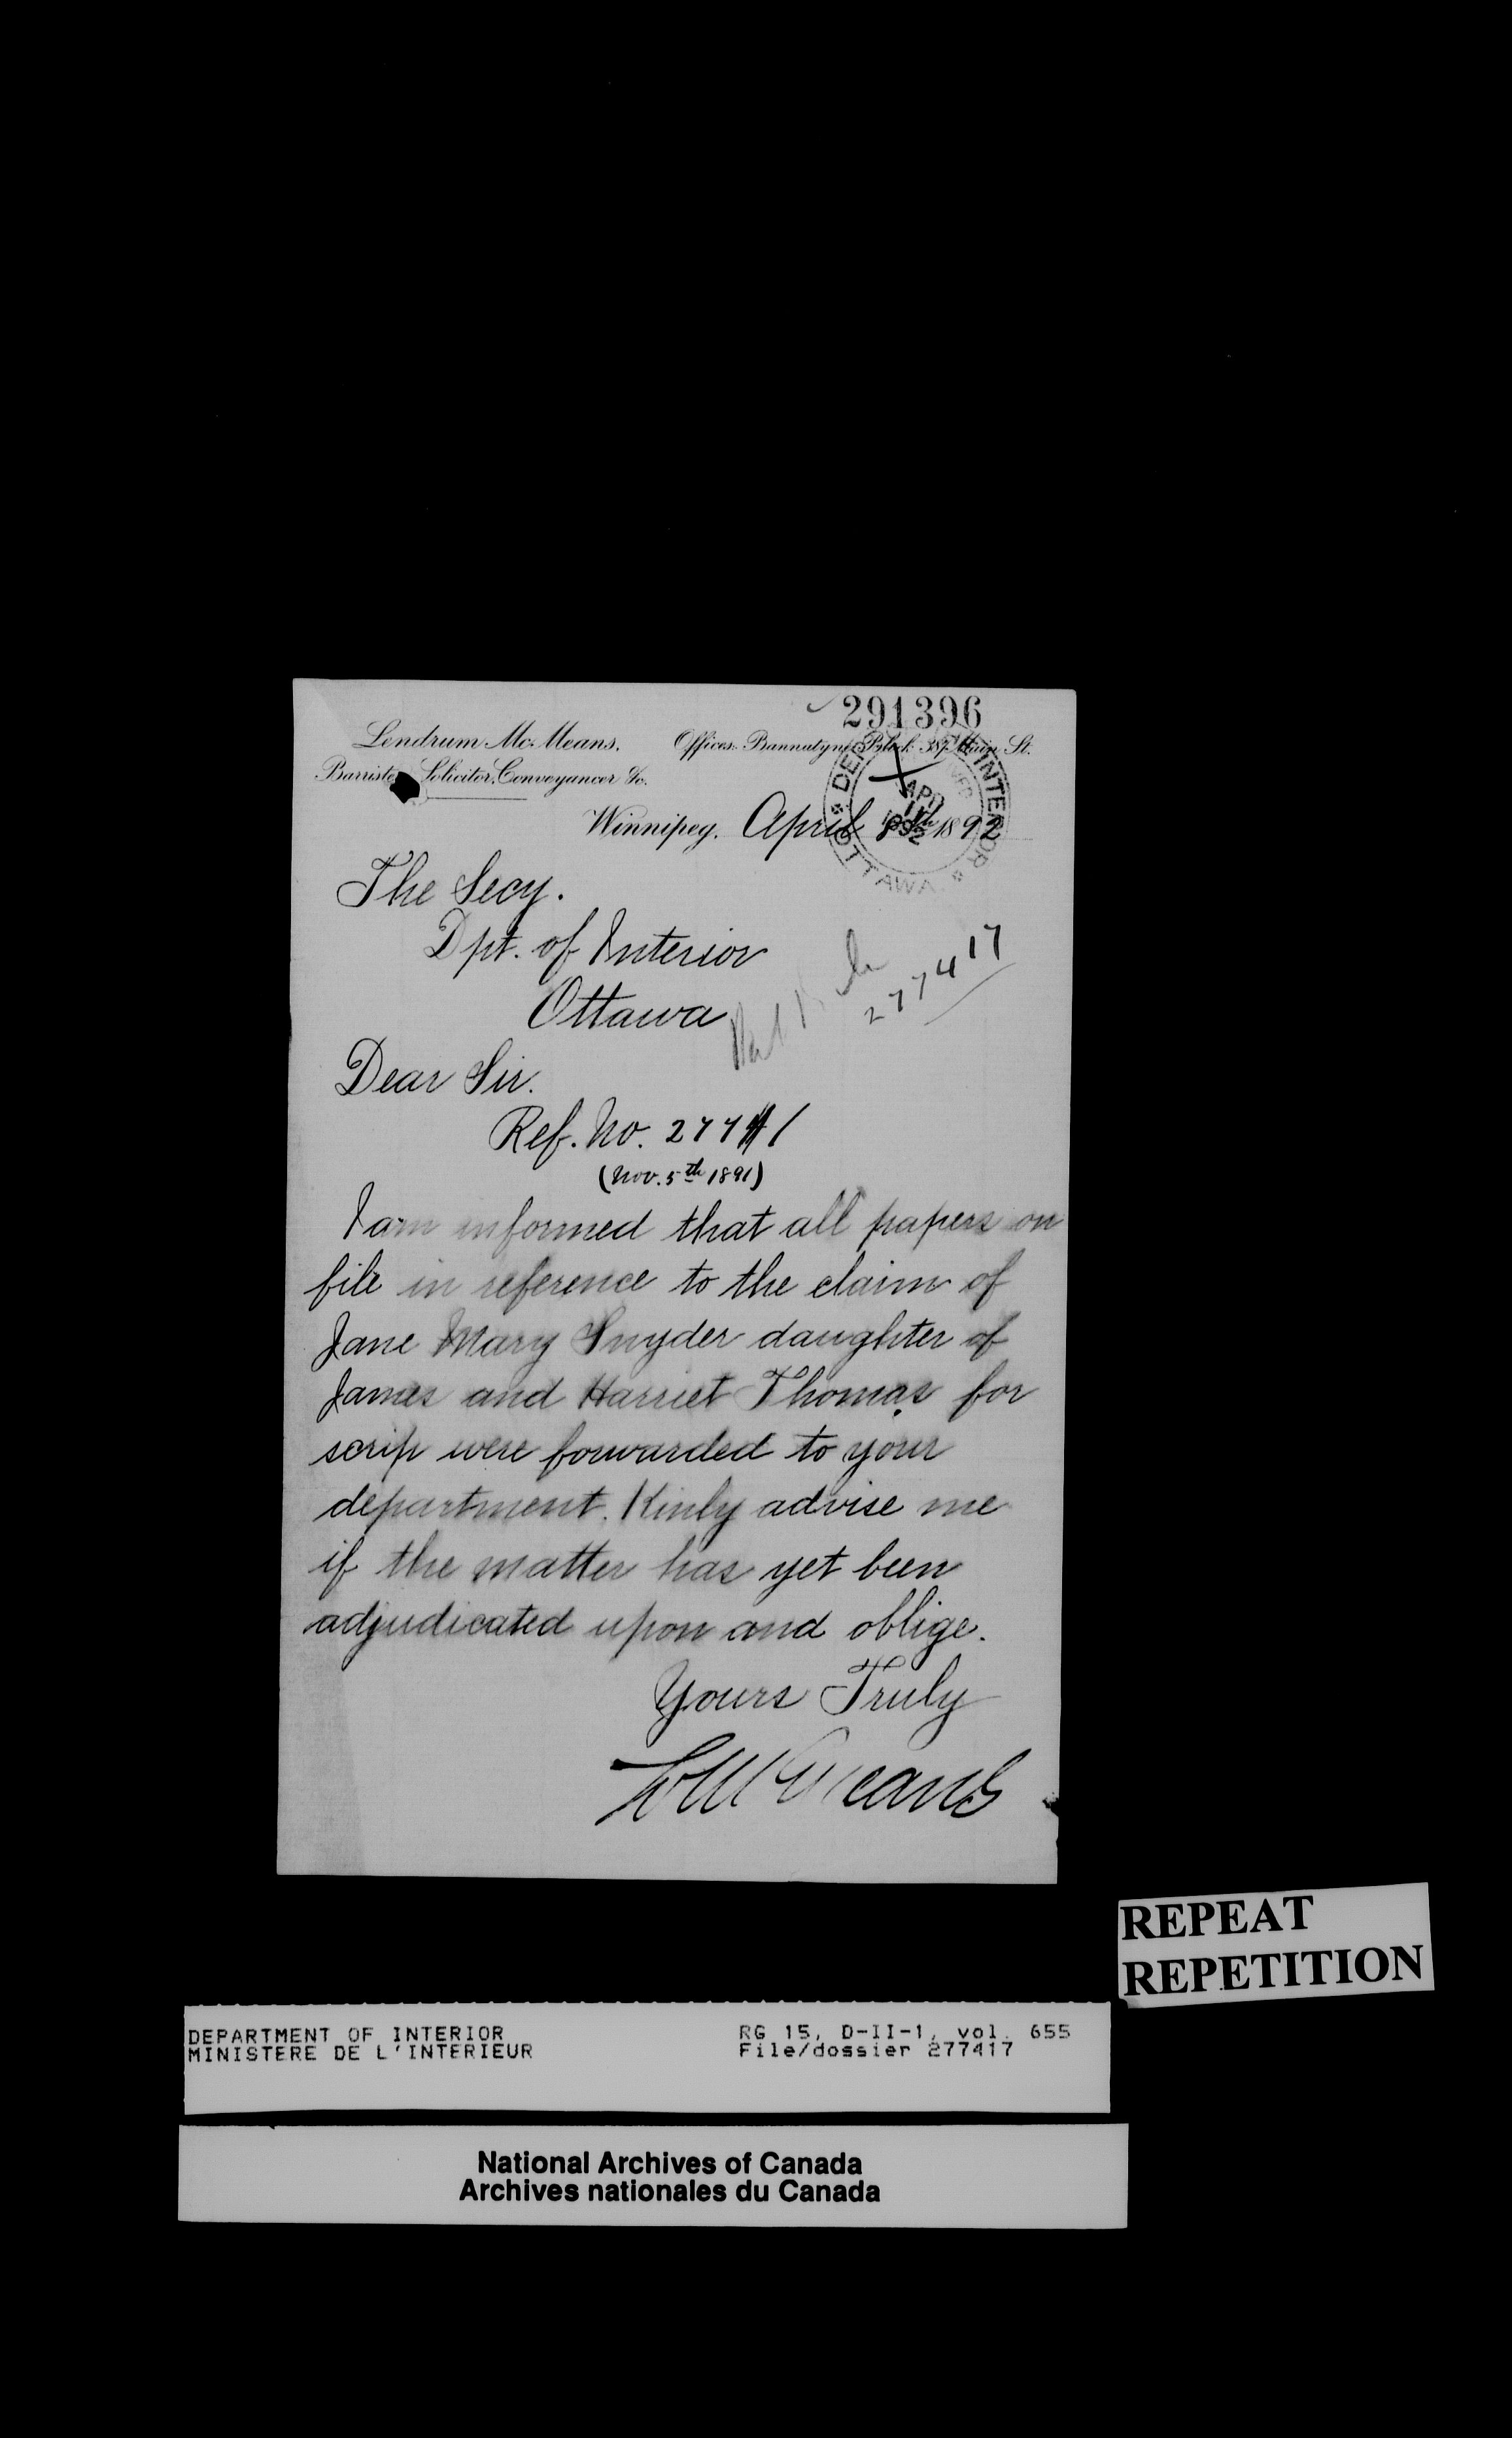 291396
Lendrum Mc. Means. Offices. Bannatyne Block Main St.
Barrister Solicitor, Conveyancer &c.
DEPT INTERIOR OTTAWA
APR
Winnipeg, April 1892
The Secy.
Dpt. of Interior
277417
Ottawa
Dear Sir.
Ref. No.
(Nov. 5th 1891)
I am informed that all papers on
file in reference to the claim of
Jane Mary Snyder daughter of
James and Harriet Thomas for
scrip were forwarded to your
department. Kinly advise me
if the matter has yet been
adjudicated upon and oblige.
Yours Truly
L McMeans
REPEAT
REPETITION
DEPARTMENT OF INTERIOR RG 15, D-II-1, vol. 655
MINISTERE DE L'INTERIEUR File/dossier 277417
National Archives of Canada
Archives nationales du Canada